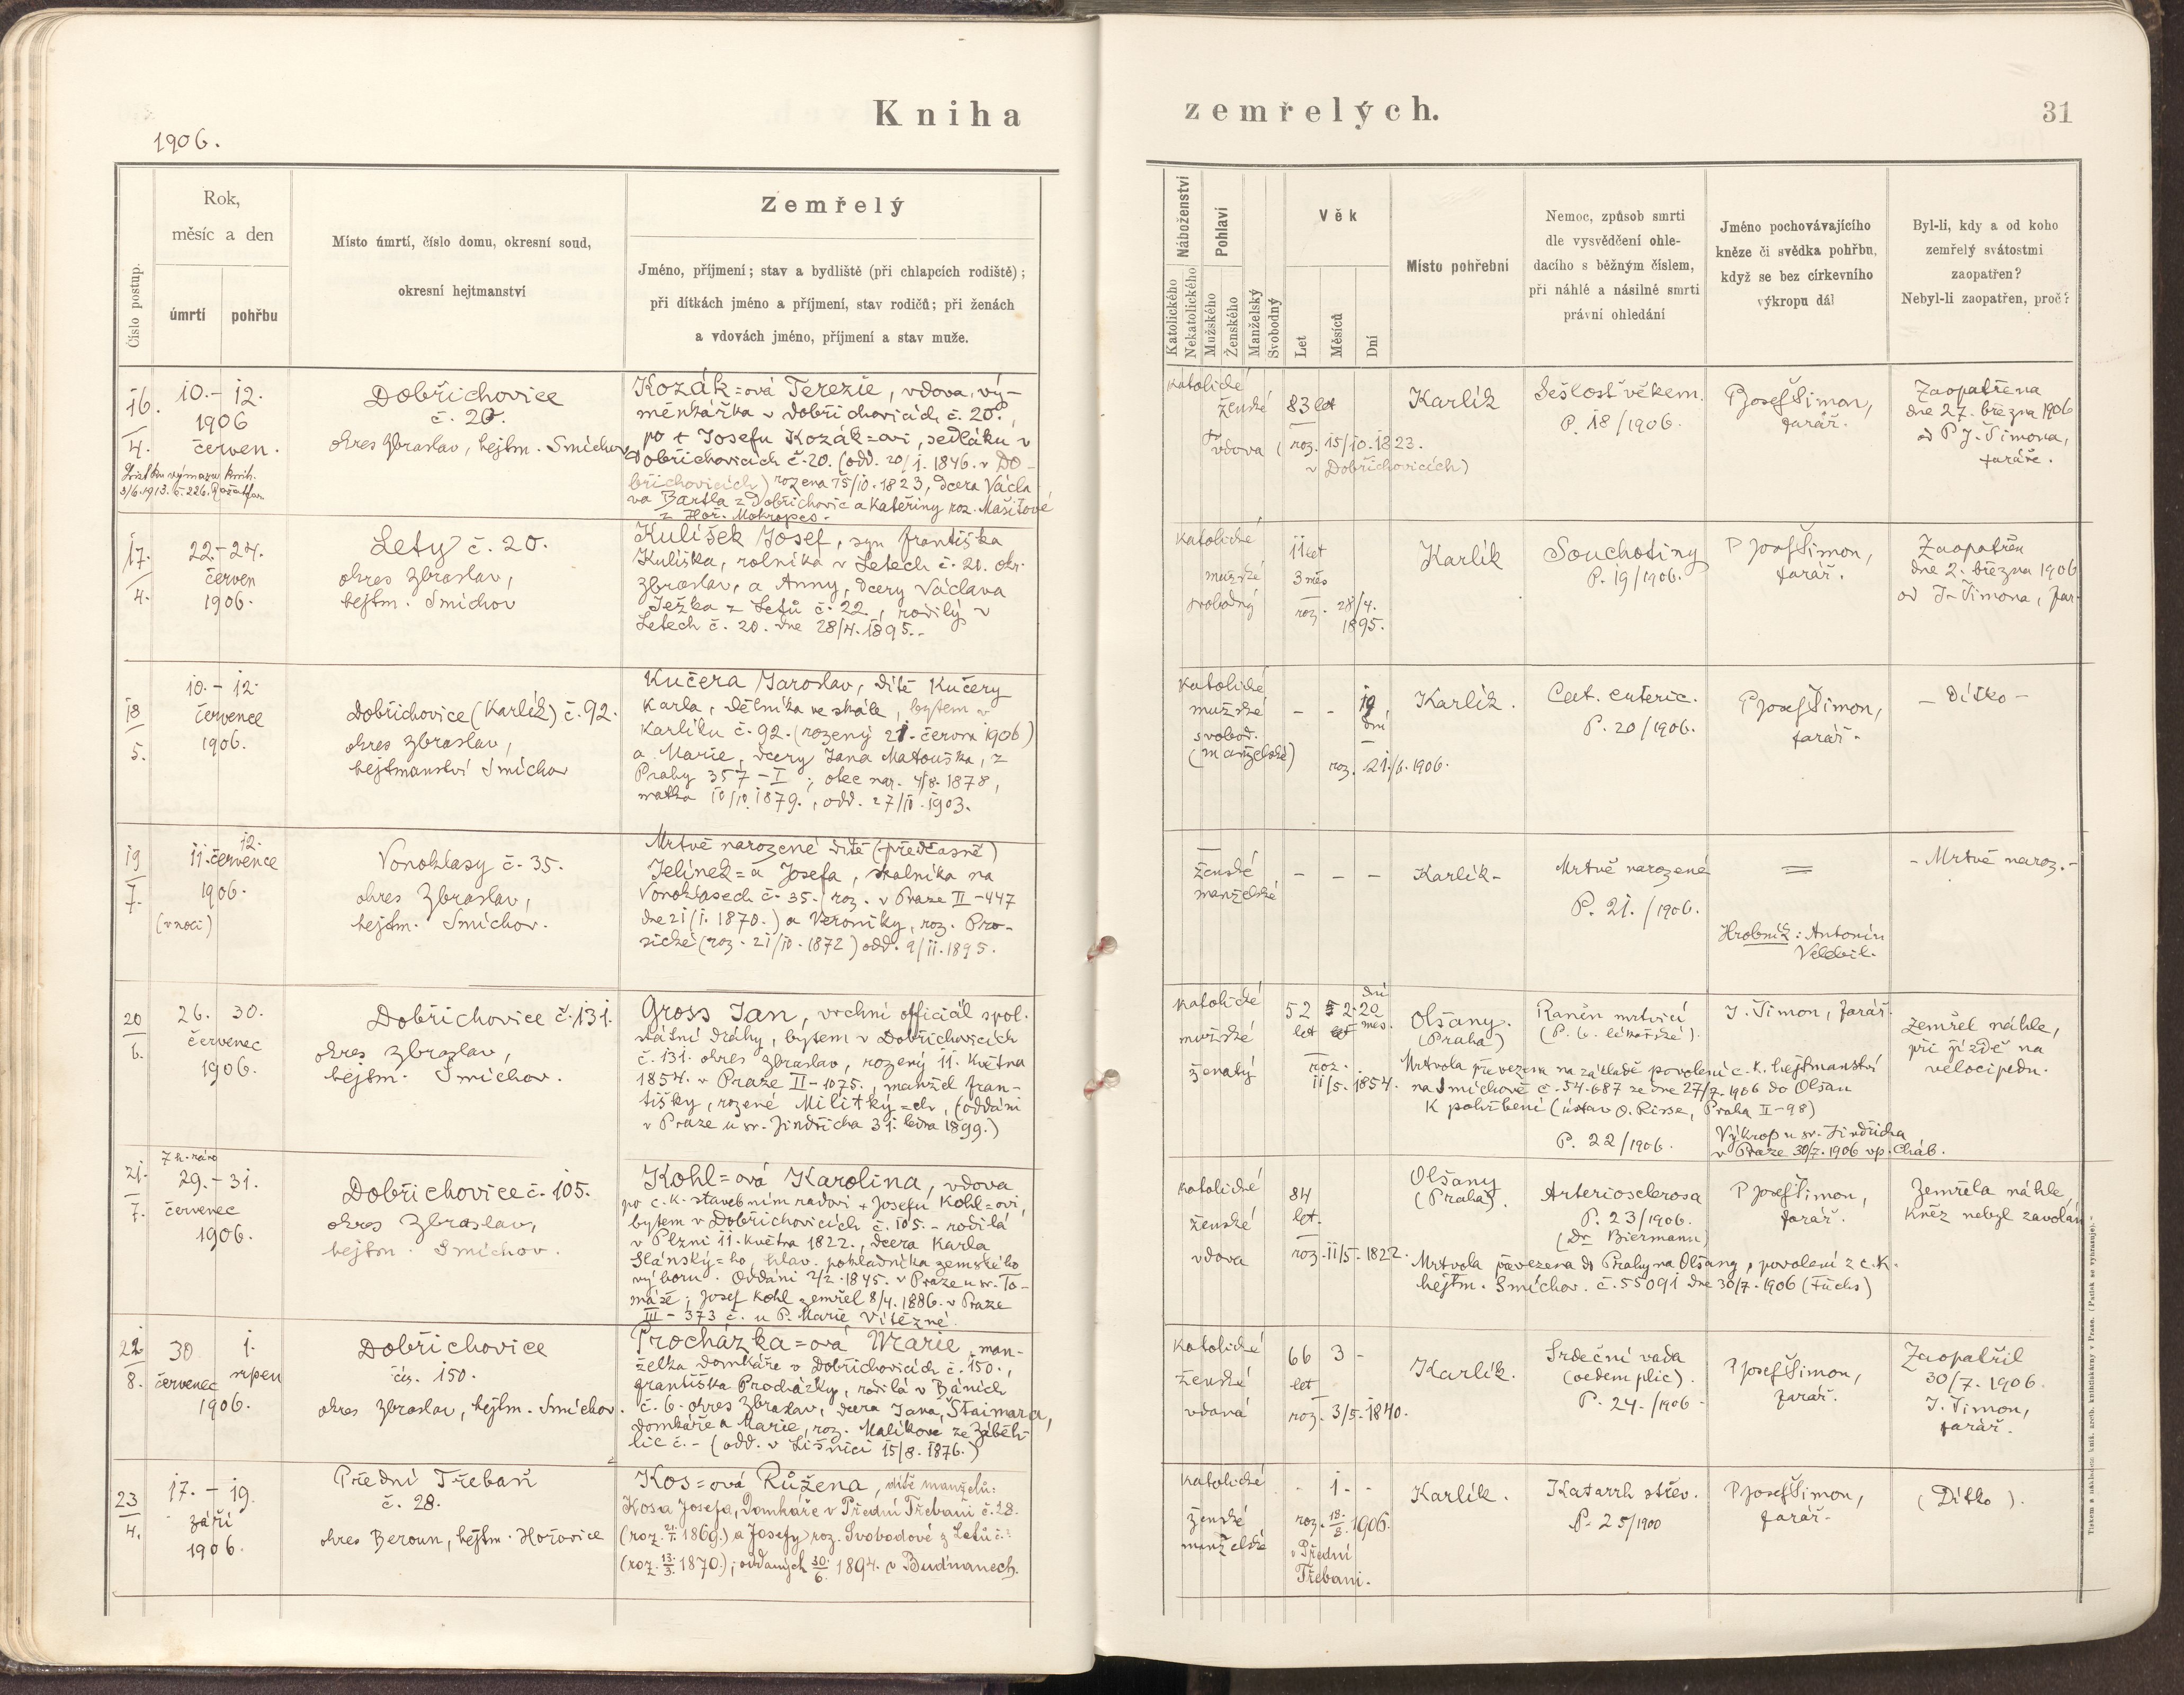 Kniha zemřelých.
31
1906.
Číslo postup.
Rok,
měsíc a den
úmrtí
pohřbu
Místo úmrtí, číslo domu, okresní soud,
okresní hejtmanství
Zemřelý
Jméno, příjmení; stav a bydliště (při chlapcích rodiště);
při dítkách jméno a příjmení, stav rodičů; při ženách
a vdovách jméno, příjmení a stav muže.
Náboženství
Katolického
Nekatolického
Pohlaví
Mužského
Ženského
Manželský
Svobodný
Věk
Let
Měsíců
Dní
Místo pohřební
Nemoc, způsob smrti
dle vysvědčení ohle-
dacího s běžným číslem,
při náhlé a násilné smrti
právní ohledání
Jméno pochovávajícího
kněze či svědka pohřbu,
když se bez církevního
výkropu dál
Byl-li, kdy a od koho
zemřelý svátostmi
zaopatřen?
Nebyl-li zaopatřen, proč?
16.
4.
10. – 12.
1906
červen.
3/6.1913. č. 226.
Dobřichovice
č. 20.
okres Zbraslav, hejtm. Smíchov
Kozák=ová Terezie, vdova, vý-
měnkářka v Dobřichovicích č. 20.,
po † Josefu Kozák=ovi, sedláku v
Dobřichovicích č. 20. (odd. 20/1. 1846. v Do-
břichovicích) rozena 15/10. 1823, dcera Václa
va Bartla z Dobřichovic a Kateřiny roz. Mašitové
z Hoř. Mokropes.
katolické
ženské
vdova
83 let
(roz. 15/10. 1823.
v Dobřichovicích)
Karlík
Sešlost věkem.
P. 18/1906.
P Josef Šimon,
farář.
Zaopatřena
dne 27. března 1906
od P J. Šimona,
faráře.
17.
4.
22. – 24.
červen
1906.
Lety č. 20.
okres Zbraslav,
hejtm. Smíchov
Kulíšek Josef, syn Františka
Kulíška, rolníka v Letech č. 20. okr.
Zbraslav, a Anny, dcery Václava
Ježka z Letů č. 22, rodilý v
Letech č. 20. dne 28/4. 1895.
katolické
mužské
svobodný
11 let
3 měs
roz. 28/4.
1895.
Karlík
Souchotiny
P. 19/1906.
P Josef Šimon,
farář.
Zaopatřen
dne 2. března 1906
od J. Šimona, far.
18
5.
10. – 12.
července
1906.
Dobřichovice (Karlík) č. 92.
okres Zbraslav,
hejtmanství Smíchov
Kučera Jaroslav, dítě Kučery
Karla, dělníka ve skále, bytem v
Karlíku č. 92. (rozený 21. června 1906)
a Marie, dcery Jana Matouška, z
Prahy 357–I; otec nar. 4/8. 1878,
matka 10/10. 1879., odd. 27/10. 1903.
katolické
mužské
svobod.
(manželské)
– – 19
dní
roz. 21./6. 1906.
Karlík.
Cat. enteric.
P. 20/1906.
P Josef Šimon,
farář.
– Dítko –
19
7.
11. 12.
července
1906.
(v noci)
Vonoklasy č. 35.
okres Zbraslav,
hejtm. Smíchov.
Mrtvě narozené dítě (předčasně)
Jelínek=a Josefa, skalníka na
Vonoklasech č. 35. (roz. v Praze II–447
dne 21/1. 1870.) a Veroniky, roz. Pro-
sické (roz. 21/10. 1872) odd. 9/11. 1895.
ženské
manželské
– – –
Karlík –
Mrtvě narozené
P. 21./1906.
=
Hrobník: Antonín
Velebil.
– Mrtvě naroz. –
20
6.
26. 30.
červenec
1906.
Dobřichovice č. 131.
okres Zbraslav,
hejtm. Smíchov.
Gross Jan, vrchní officiál spol.
státní dráhy, bytem v Dobřichovicích
č. 131. okres Zbraslav, rozený 11. května
1854. v Praze II–1075., manžel Fran-
tišky, rozené Militký=ch, (oddáni
v Praze u sv. Jindřicha 31. ledna 1899.)
katolické
mužské
ženatý
52 2 20
let měs. dní
roz.
11/5. 1854.
Olšany.
(Praha)
Raněn mrtvicí
(P. v. lékařské).
J. Šimon, farář.
Zemřel náhle,
při jízdě na
velocipedu.
Mrtvola převezena na základě povolení c. k. hejtmanství
na Smíchově č. 54.687 ze dne 27/7. 1906 do Olšan
k pohřbení (ústav O. Risse, Praha II–98)
P. 22/1906.
Výkrop u sv. Jindřicha
v Praze 30/7. 1906 vp. Cháb.
21.
7.
7 h. ráno
29. – 31.
červenec
1906.
Dobřichovice č. 105.
okres Zbraslav,
hejtm. Smíchov.
Kohl=ová Karolina, vdova
po c. k. stavebním radovi † Josefu Kohl=ovi,
bytem v Dobřichovicích č. 105. – rodilá
v Plzni 11. května 1822., dcera Karla
Slánský=ho, hlav. pokladníka zemského
výboru. Oddáni 2/2. 1845. v Praze u sv. To-
máše; Josef Kohl zemřel 8/4. 1886. v Praze
III – 373 č. u P. Marie Vítězné.
katolické
ženské
vdova
84
let.
roz. 11/5. 1822.
Olšany
(Praha).
Arteriosclerosa
P. 23/1906.
(Dr. Biermann)
P Josef Šimon,
farář.
Zemřela náhle,
kněz nebyl zavolán
Mrtvola převezena do Prahy na Olšany, povolení z c. k.
hejtm. Smíchov. č. 55091 dne 30/7. 1906 (Fuchs)
22
8.
30 1.
červenec srpen
1906.
Dobřichovice
čís. 150.
okres Zbraslav, hejtm. Smíchov.
Procházka=ová Marie, man-
želka domkáře v Dobřichovicích č. 150.,
Františka Procházky, rodilá v Báních
č. 6. okres Zbraslav, dcera Jana Štaimara,
domkáře a Marie, roz. Malíkove ze Záběh-
lic č. – (odd. v Líšnici 15/8. 1876.)
katolické
ženské
vdaná
66 3 –
let
roz. 3/5. 1840.
Karlík.
Srdeční vada
(oedem plic).
P. 24./1906.
P Josef Šimon,
farář.
Zaopatřil
30/7. 1906.
J. Šimon,
farář.
23
4.
17. – 19.
září
1906.
Přední Třebaň
č. 28.
okres Beroun, hejtm. Hořovice
Kos=ová Růžena, dítě manželů:
Kosa Josefa, Domkáře v Přední Třebani č. 28.
(roz. 21/1. 1869.) a Josefy roz. Svobodové z Letů č.
(roz. 13/3. 1870.); oddaných 30/6. 1894. v Budňanech.
katolické
ženské
manželské
– 1 –
roz. 18/8. 1906.
v Přední
Třebani.
Karlík.
Katarrh střev.
P. 25/1900
P Josef Šimon,
farář.
(Dítko).
Tiskem a nákladem kníž. arcib. knihtiskárny v Praze. (Patisk se vyhrazuje).